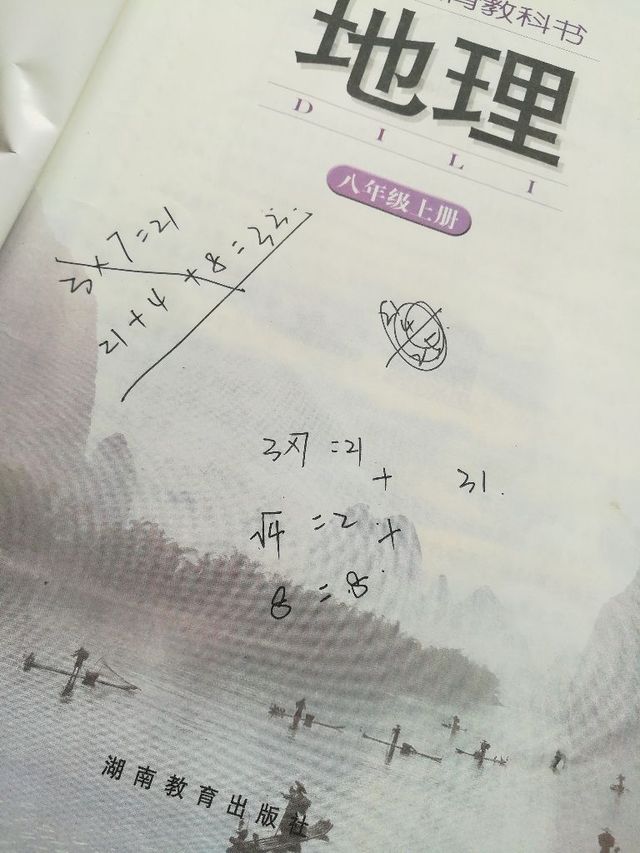 育教科书
地理
D I L I
八年级上册
3×7=21
21+4×8=32.
3×7=21
+ 31.
√4=2+
8=8
湖南教育出版社